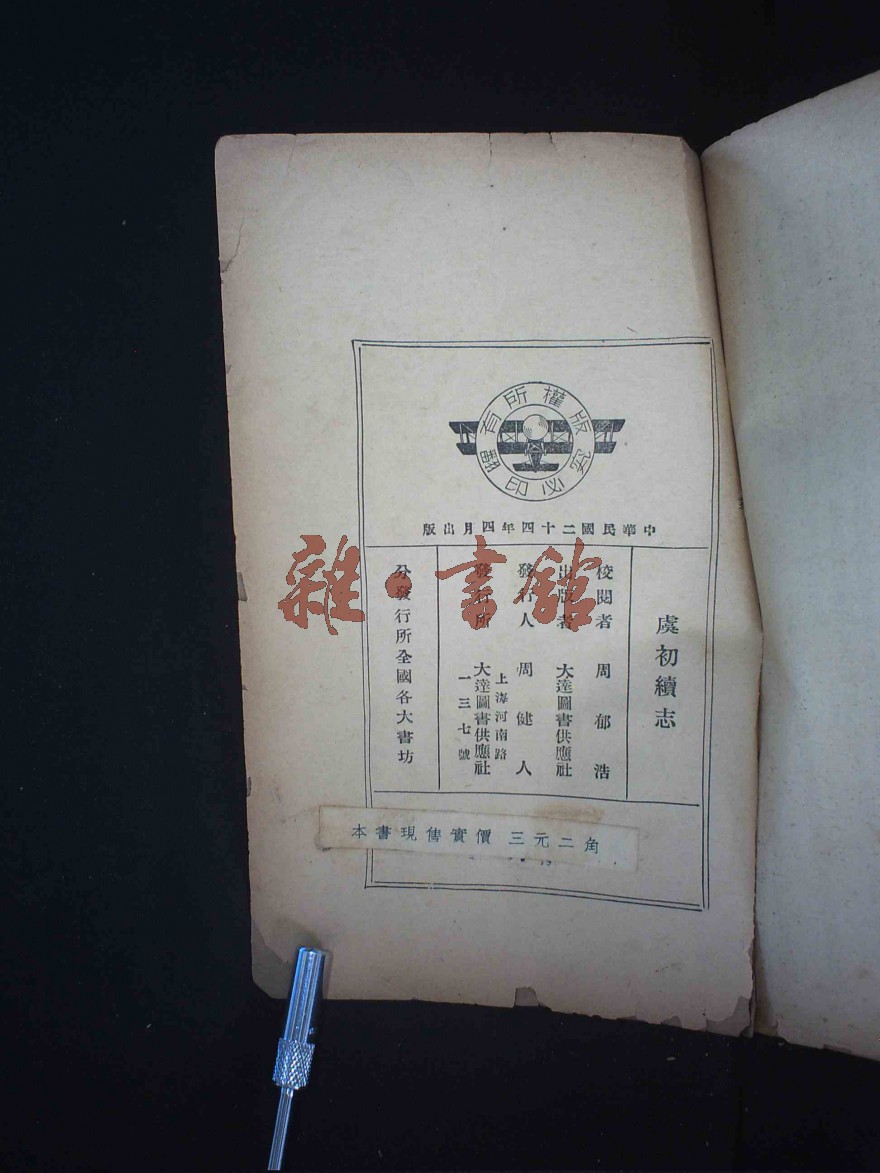 版權所有
翻印必究
中華民國二十四年四月出版
虞初續志
校閱者 周郁浩
出版者 大達圖書供應社
發行人 周健人
發行所 上海河南路
大達圖書供應社
一三七號
分發行所全國各大書坊
本書現售實價 三元二角
雜·書館